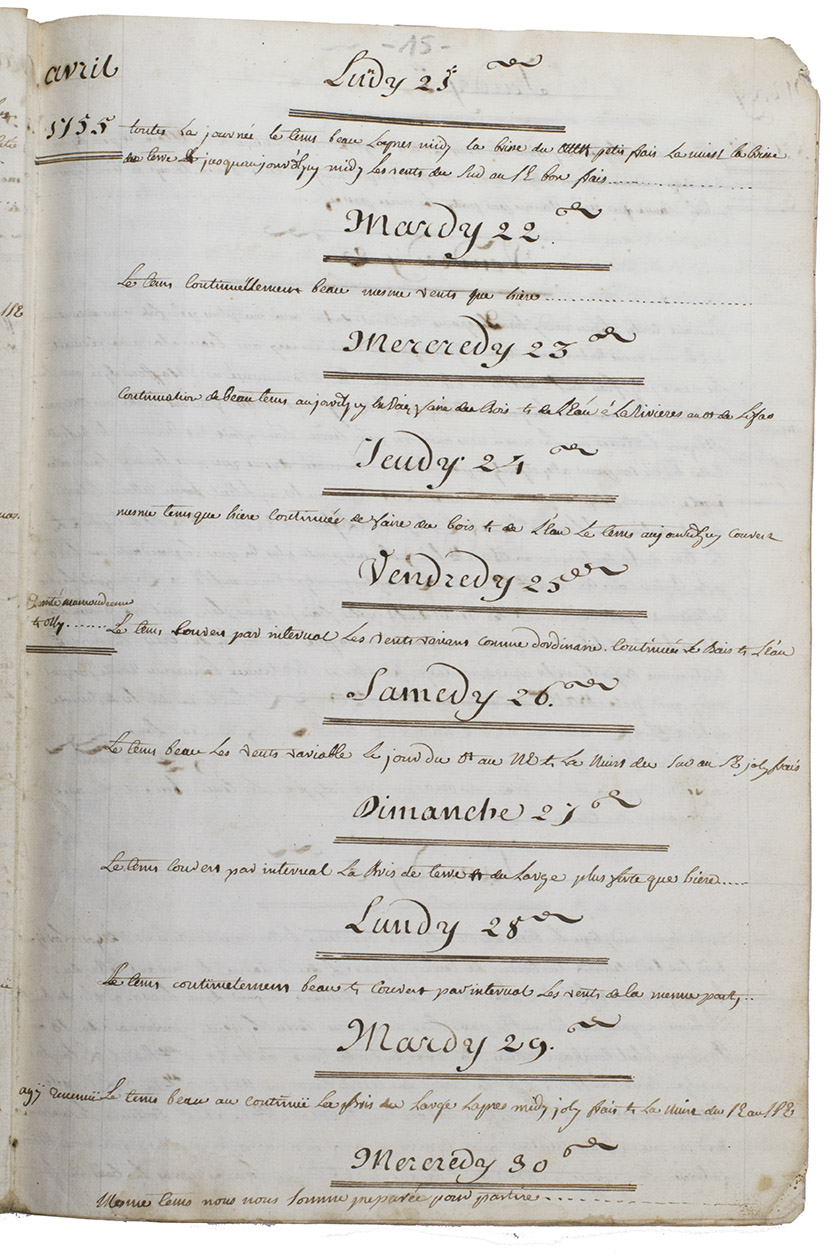 - 15 -
avril
1755
Ludy 21
toutes la journée le tems beau Lapres midy la brise du petit frais La nuist la Brise
de terre jusqu'aujourd'huy midy Les vents du Sud au SE bon frais
Mardy 22.
Le tems Continuëllement beau mesme vents que hière
Mercredy 23
Continuation de beau tems aujourd'huy faire du Bois & de L'Eau a La Rivieres au de
Jeudy 24
mesme tems que hière continuée de faire du bois & de L'eau Le tems aujourd'huy couvert
Vendredy 25
Le tems Couvers par interval Les vents varians comme d'ordinaire. Continuée Le Bois & L'eau
Samedy 26.
Le tems beau Les vents variable Le jour du au NE & La Nuist du Sud au SE joly frais
Dimanche 27
Le tems Couvers par interval La Bris de terre du Large plus forte que hière
Lundy 28
Le tems continuelement beau & Couvert par interval Les vents de la mesme part,
Mardy 29.
Le tems beau au continuë La Bris du Large Lapres midy joly frais & La Nuist du SE au NE
Mercredy 30
Mesme tems nous nous somme preparée pour partire